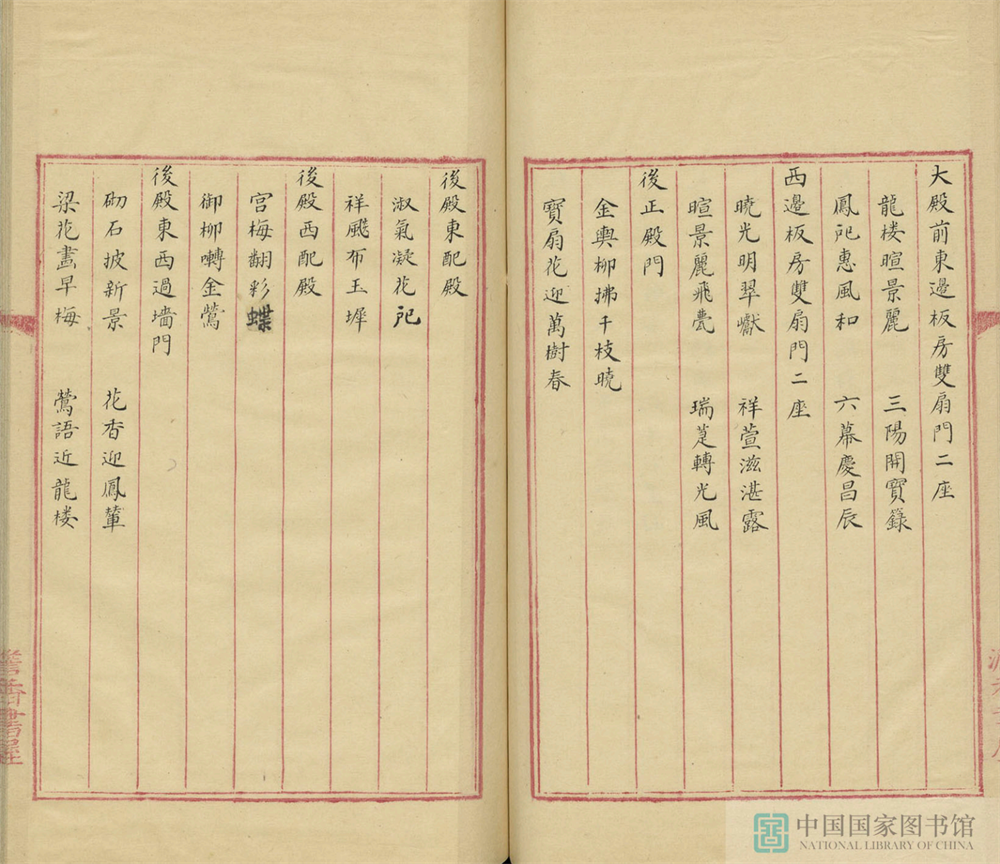 大殿前東邊板房雙扇門二座
龍楼暄景麗 三陽開寶籙
鳳戺惠風和 六幕慶昌辰
西邊板房雙扇門二座
曉光明翠巘 祥萱滋湛露
暄景麗飛甍 瑞萐轉光風
後正殿門
金輿柳拂千枝曉
寶扇花迎萬樹春
後殿東配殿
淑氣凝花戺
祥飈布玉墀
後殿西配殿
宫梅翻彩蝶
御柳囀金鶯
後殿東西過墻門
砌石披新景 花香迎鳳輦
梁花畫早梅 鶯語近龍楼
中国国家图书馆
NATIONAL LIBRARY OF CHINA